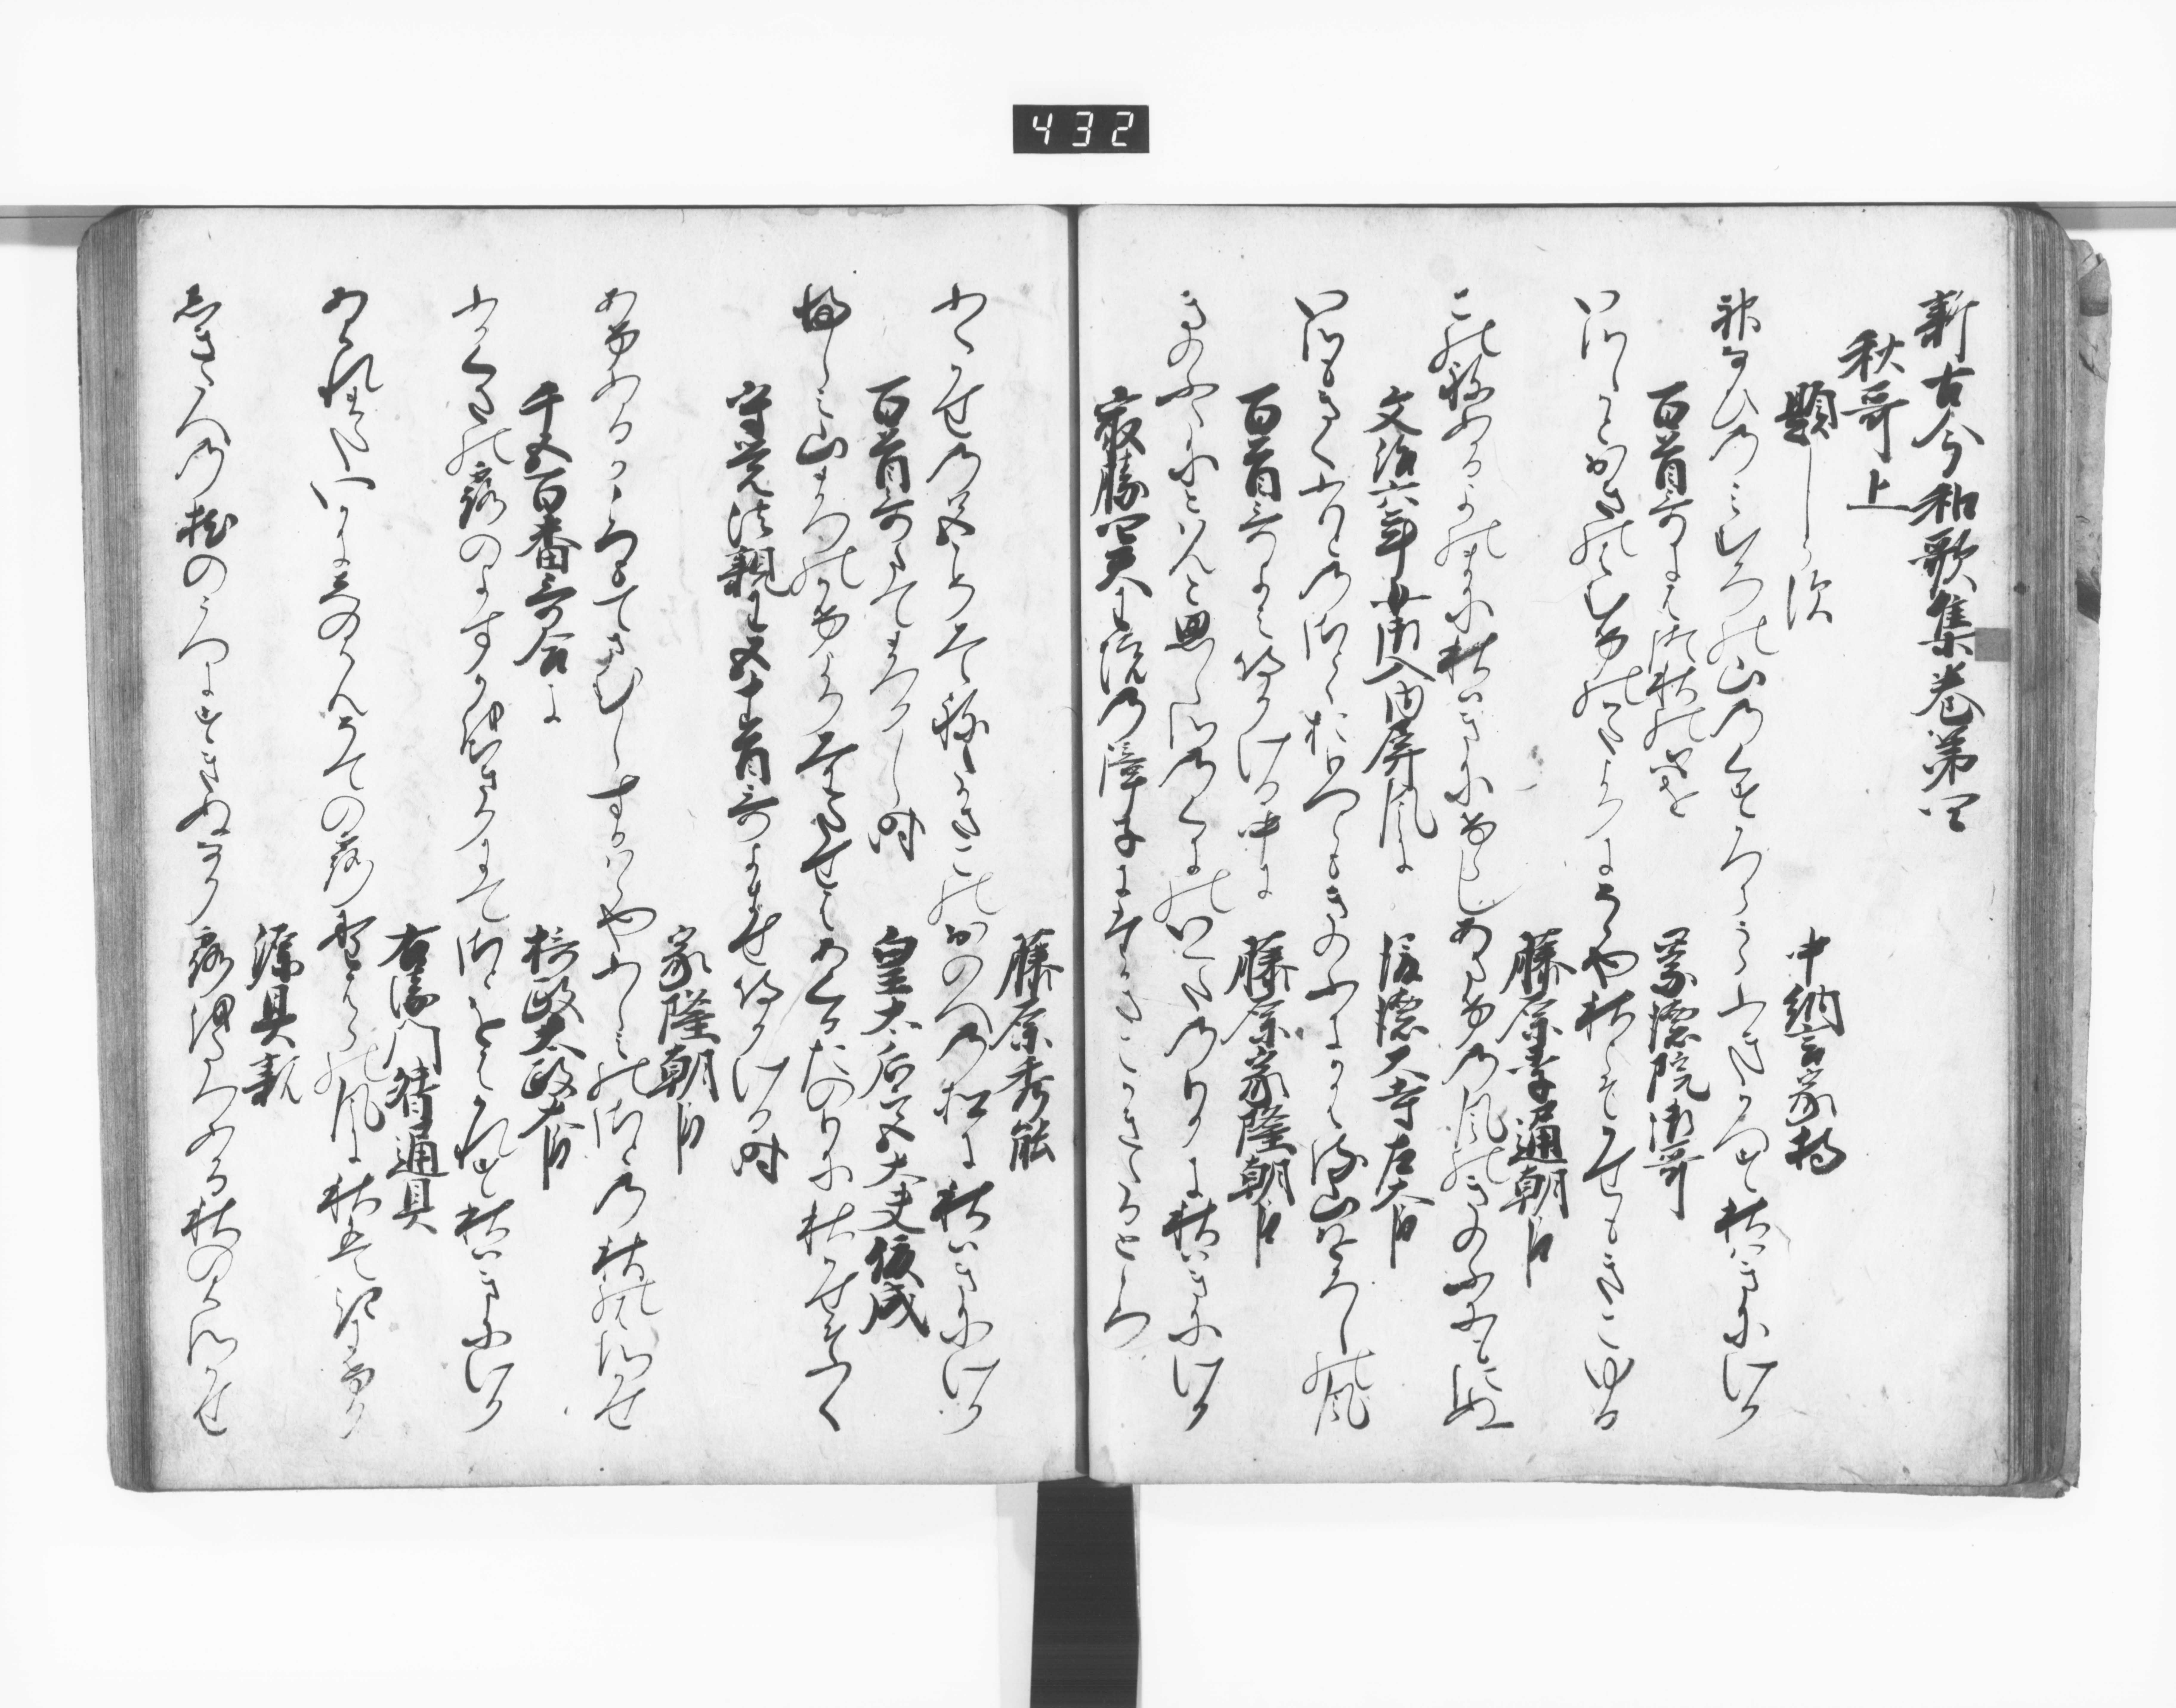 新古今和歌集巻第四
秋哥上
題しらす　中納言家持
神なひのみむろの山のくすかつらうらふきかへす秋はきにけり
百首哥に初秋の心を　崇徳院御哥
いつしかとおきのはむけのかたよりにそゝや秋とそかせもきこゆる
藤原季通朝臣
このねぬるよのまに秋はきにけらしあさけの風のきのふにもにぬ
文治六年女御入内屏風に　後徳大寺左大臣
いつもきくふもとのさとゝおもへともきのふにかはる山おろしの風
百首哥よみ侍ける中に　藤原家隆朝臣
きのふたにとはんと思しつのくにのいくたのもりに秋はきにけり
最勝四天王院の障子にたかさこかきたるところ
藤原秀能
ふくかせの色こそみえねたかさこのおのへの松に秋はきにけり
百首哥たてまつりし時　皇太后宮大夫俊成
伏し見山まつのかけよりみわたせはあくるたのもに秋かせそふく
守覚法親王五十首哥よませ侍ける時
家隆朝臣
あけぬるかころもてさむしすかはらやふしみのさとの秋のはつかせ
千五百番哥合に　摂政太政大臣
ふかくさの露のよすかを契にてさとをはかれす秋はきにけり
右衛門督通具
あはれまたいかにしのはんそての露野はらの風に秋はきにけり
源具親
しきたへの枕のうへにすきぬなり露をたつぬる秋のはつかせ
432